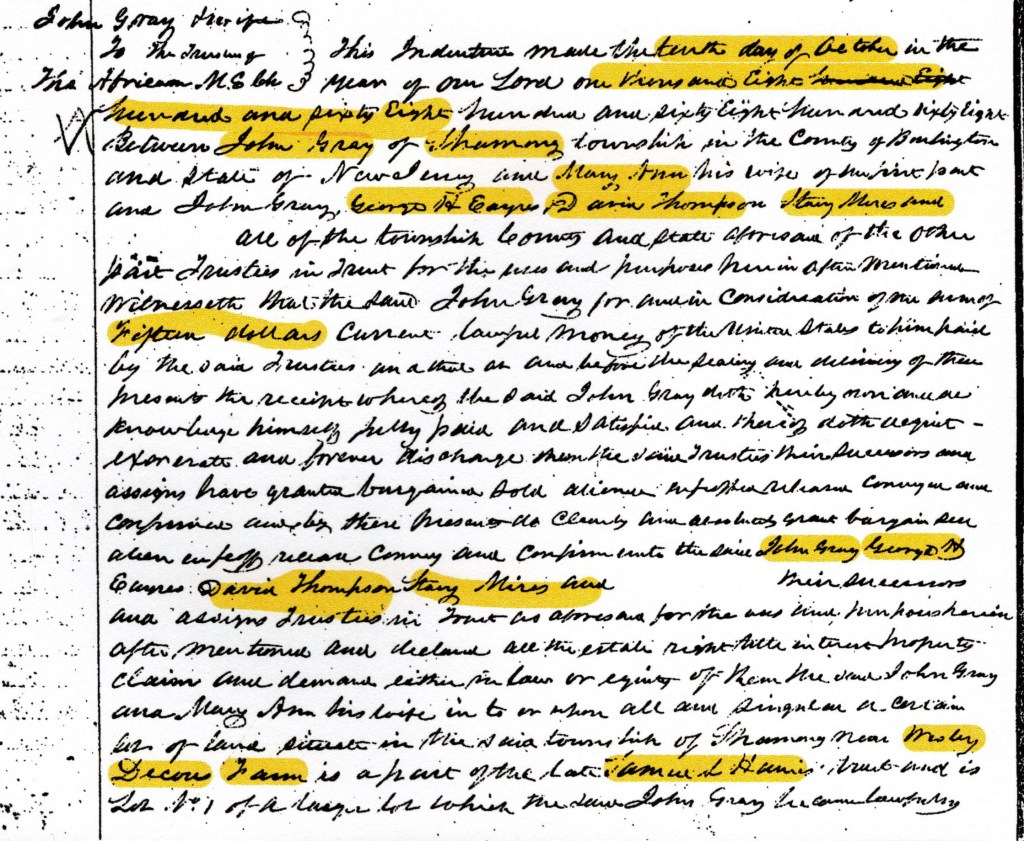 John Gray & wife
To The Trustees of } This Indenture made the tenth day of October in the
The African M. E. Ch } year of our Lord one thousand Eight hundred Eight
hundred and sixty Eight hundred and sixty Eight hundred sixty Eight
Between John Gray of Shamong township in the County of Burlington
and State of New Jersey and Mary Ann his wife of the first part
and John Gray, George H Eayres, David Thompson Stacy Mires and
all of the township County and State aforesaid of the other
part Trustees in Trust for the uses and purposes herein after mentioned
Witnesseth that the said John Gray for and in Consideration of the sum of
Fifteen dollars Current lawful money of the United States to him paid
by the said Trustees and at and before the sealing and delivery of these
presents the receipt whereof the said John Gray doth hereby and ac
knowledge himself fully paid and satisfied and thereof doth acquit -
exonerate and forever discharge them the said Trustees their successors and
assigns have granted bargained sold aliened enfeoffed released conveyed and
confirmed and by these presents do clearly and absolutely grant bargain sell
alien enfeoff release convey and confirm unto the said John Gray George H
Eayres David Thompson Stacy Mires and their successors
and assigns Trustees in Trust as aforesaid for the uses and purposes herein
after mentioned and declared all the estate right title interest property
claim and demand either in law or equity of them the said John Gray
and Mary Ann his wife in to or upon all and singular a certain
lot of land situate in the said township of Shamong near Wesley
Decou Farm is a part of the late Samuel L Harris tract and is
Lot No 1 of a larger lot which the said John Gray became lawfully